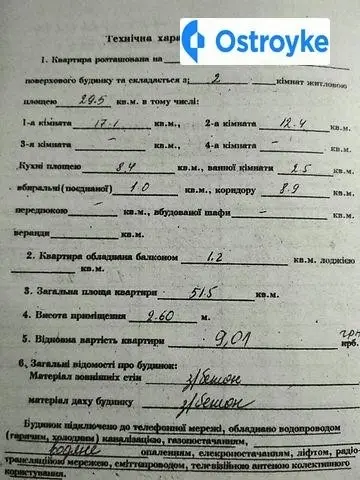 Ostroyke
Технічна хара
1. Квартира розташована на
поверхового будинку та складається з; 2 кімнат житловою
площею 29.5 кв.м. в тому числі:
1-а кімната 17.1 кв.м., 2-а кімната 12.4 кв.м.
3-я кімната – кв.м., 4-а кімната – кв.м.
Кухні площею 8,4 кв.м., ванної кімнати 2.5 кв.м.
вбиральні (поєднаної) 1.0 кв.м., коридору 8.9 кв.м.
передпокою – кв.м., вбудованої шафи – кв.м.
веранди кв.м.
2. Квартира обладнана балконом 1.2 кв.м. лоджією
кв.м.
3. Загальна площа квартири 51.5 кв.м.
4. Висота приміщення 2.60 м.
5. Відновна вартість квартири 9,01 грн крб.
6. Загальні відомості про будинок:
Матеріал зовнішніх стін з/бетон
матеріал даху будинку з/бетон
Будинок підключено до телефонної мережі, обладнано водопроводом
(гарячим, холодним) каналізацією, газопостачанням,
водяне опаленням, елекроностачанням, ліфтом, радіо-
трансляційною мережею, сміттєпроводом, телевізійною антеною колективного
користування.